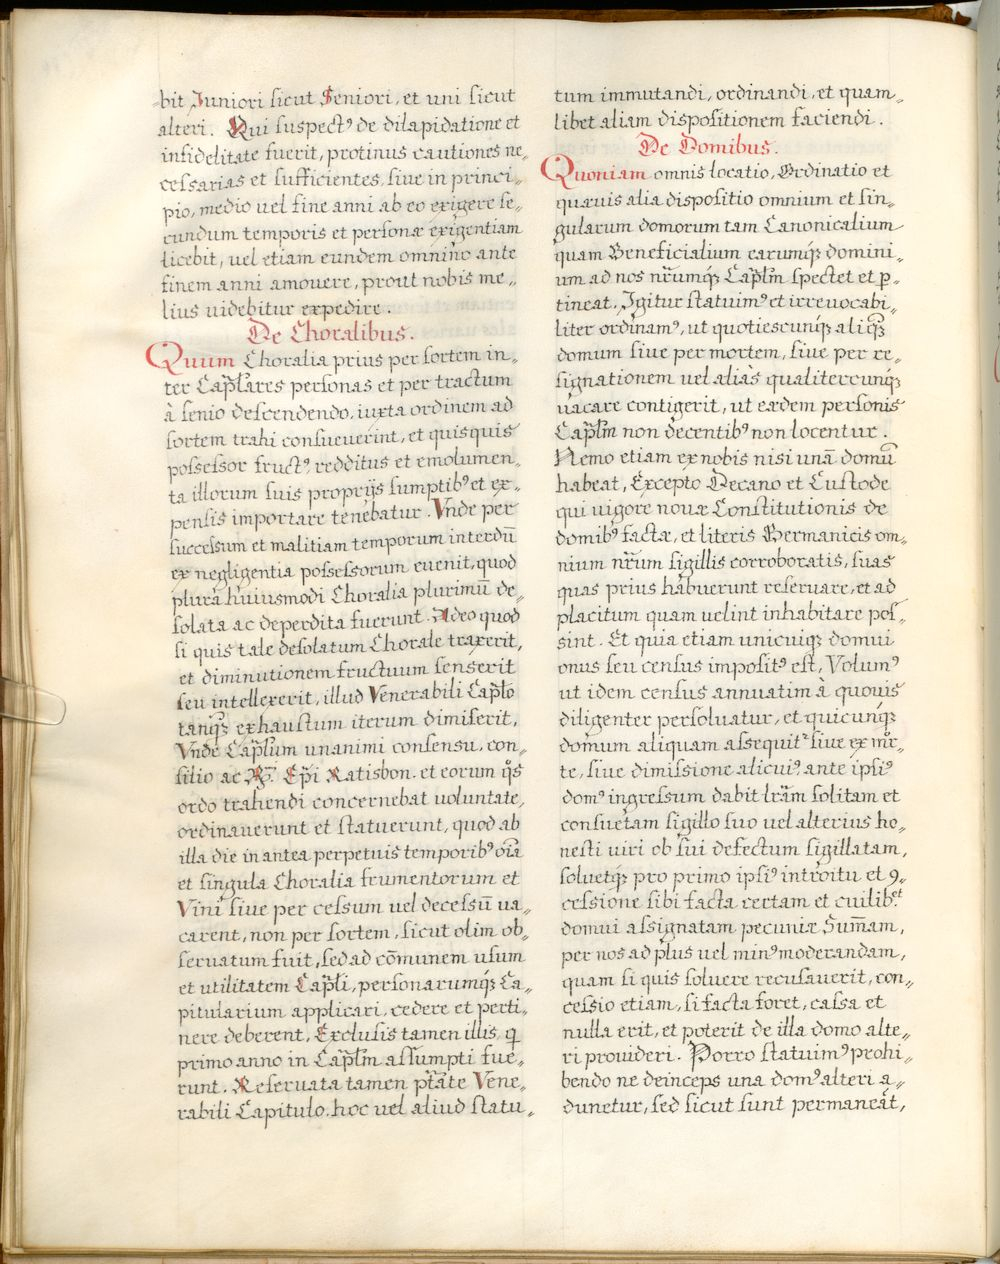 bit Juniori sicut Seniori, et uni sicut
alteri. Qui suspectꝰ de dilapidatione et
infidelitate fuerit, protinus cautiones ne„
cessarias et sufficientes, siue in princi„
pio, medio uel fine anni ab eo exigere se„
cundum temporis et personæ exigentiam
licebit, uel etiam eundem omnino ante
finem anni amouere, prout nobis me„
lius uidebitur expedire.
De Choralibus.
Quum Choralia prius per sortem in„
ter Capl̃ares personas et per tractum
à senio descendendo, iuxta ordinem ad
sortem trahi consueuerint, et quisquis
possessor fructꝰ, redditus et emolumen„
ta illorum suis proprijs sumptibꝰ et ex„
pensis importare tenebatur. Vnde per
successum et malitiam temporum interdū
ex negligentia possessorum euenit, quod
plura huiusmodi Choralia plurimū de„
solata ac deperdita fuerunt. Adeo quod
si quis tale desolatum Chorale traxerit,
et diminutionem fructuum senserit
seu intellexerit, illud Venerabili Capl̃o
tanqꝫ exhaustum iterum dimiserit,
Vnde Capl̃um unanimi consensu, con„
silio ac R̃. Ep̃i Ratisbon. et eorum q̊s
ordo trahendi concernebat uoluntate,
ordinauerunt et statuerunt, quod ab
illa die in antea perpetuis temporibꝰ oĩa
et singula Choralia frumentorum et
Vini siue per cessum uel decessū ua„
carent, non per sortem, sicut olim ob„
seruatum fuit, sed ad cōmunem usum
et utilitatem Capl̃i, personarumqꝫ Ca„
pitularium applicari, cedere et perti„
nere deberent, Exclusis tamen illis, q̃
primo anno in Capl̃m assumpti fue„
runt. Reseruata tamen ptãte Vene„
rabili Capitulo, hoc uel aliud statu„
tum immutandi, ordinandi, et quam„
libet aliam dispositionem faciendi.
De Domibus.
Quoniam omnis locatio, Ordinatio et
quæuis alia dispositio omnium et sin„
gularum domorum tam Canonicalium
quam Beneficialium earumqꝫ domini„
um ad nos nr̃umqꝫ Capl̃m spectet et ꝑ„
tineat. Igitur statuimꝰ et irreuocabi„
liter ordinamꝰ, ut quotiescunqꝫ aliqꝫ
domum siue per mortem, siue per re„
signationem uel aliàs qualitercunqꝫ
uacare contigerit, ut eædem personis
Capl̃m non decentibꝰ non locentur.
Nemo etiam ex nobis nisi unā domū
habeat, Excepto Decano et Custode
qui uigore nouæ Constitutionis de
domibꝰ factæ, et literis Germanicis om„
nium nr̃um sigillis corroboratis, suas
quas prius habuerunt reseruare, et ad
placitum quam uelint inhabitare pos„
sint. Et quia etiam unicuiqꝫ domui
onus seu census impositꝰ est, Volumꝰ
ut idem census annuatim à quouis
diligenter persoluatur, et quicunqꝫ
domum aliquam assequit᷑ siue ex mor„
te, siue dimissione alicuiꝰ ante ipsiꝰ
domꝰ ingressum dabit lr̃am solitam et
consuetam sigillo suo uel alterius ho„
nesti uiri ob sui defectum sigillatam,
soluetqꝫ pro primo ipsiꝰ introitu et ꝯ„
cessione sibi facta certam et cuilibet
domui assignatam pecuniæ Sum̃am,
per nos ad plus uel minꝰ moderandam,
quam si quis soluere recusauerit, con„
cessio etiam, si facta foret, cassa et
nulla erit, et poterit de illa domo alte„
ri prouideri. Porro statuimꝰ prohi„
bendo ne deinceps una domꝰ alteri a„
dunetur, sed sicut sunt permaneāt,